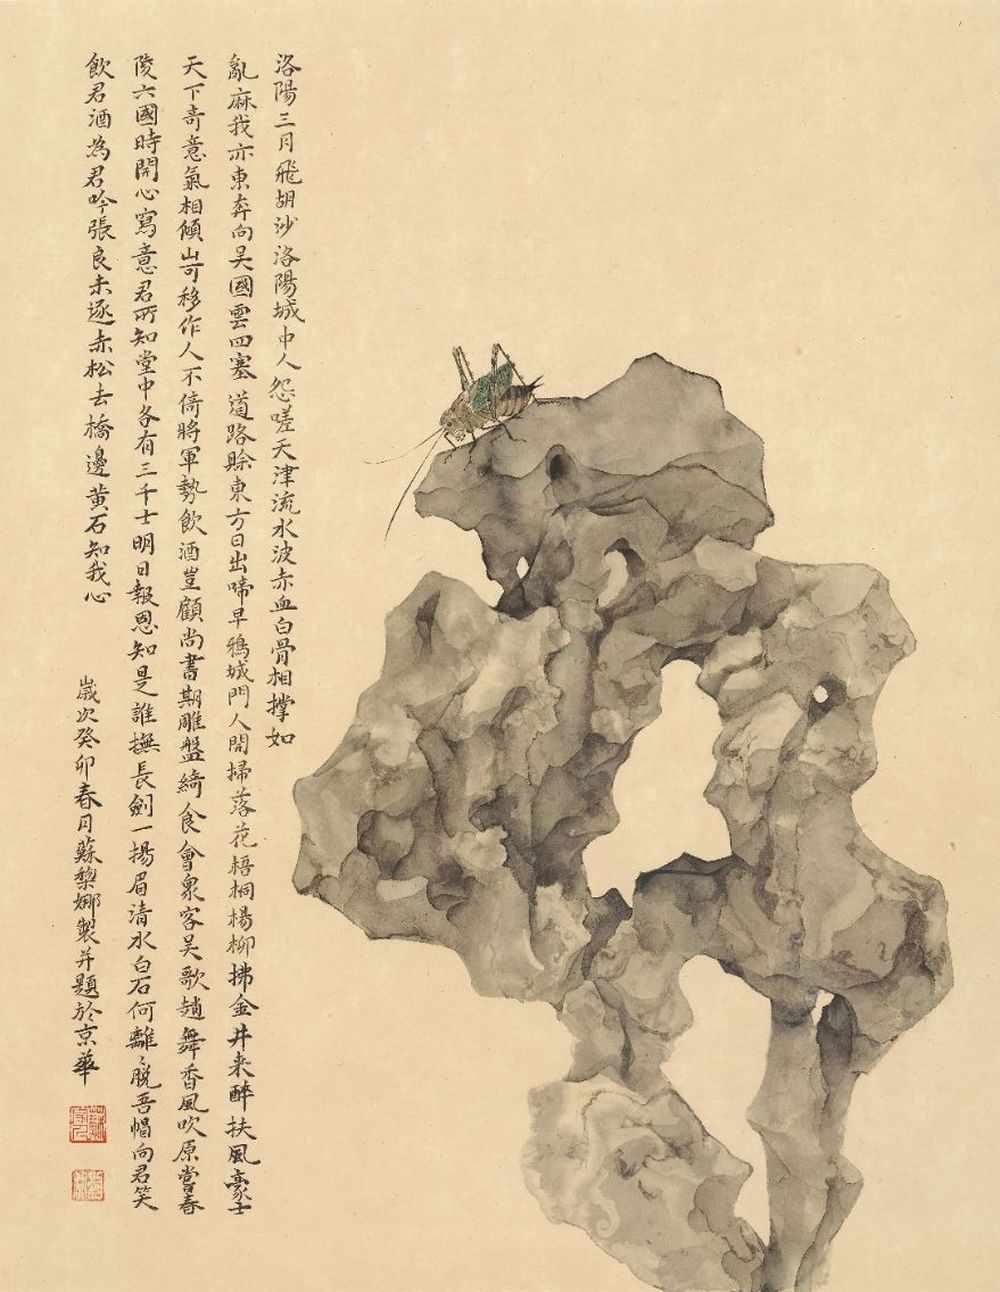 洛陽三月飛胡沙洛陽城中人怨嗟天津流水波赤血白骨相撐如
亂麻我亦東奔向吴國雲四塞道路賒東方日出啼早鴉城門人開掃落花梧桐楊柳拂金井来醉扶風豪士
天下奇意氣相傾山可移作人不倚將軍勢飲酒豈顧尚書期雕盤綺食會衆客吴歌趙舞香風吹原嘗春
陵六國時開心寫意君所知堂中各有三千士明日報恩知是誰撫長劍一揚眉清水白石何離〻脱吾帽向君笑
飲君酒為君吟張良未逐赤松去橋邊黄石知我心
歲次癸卯春月蘇黎娜製并題於京華